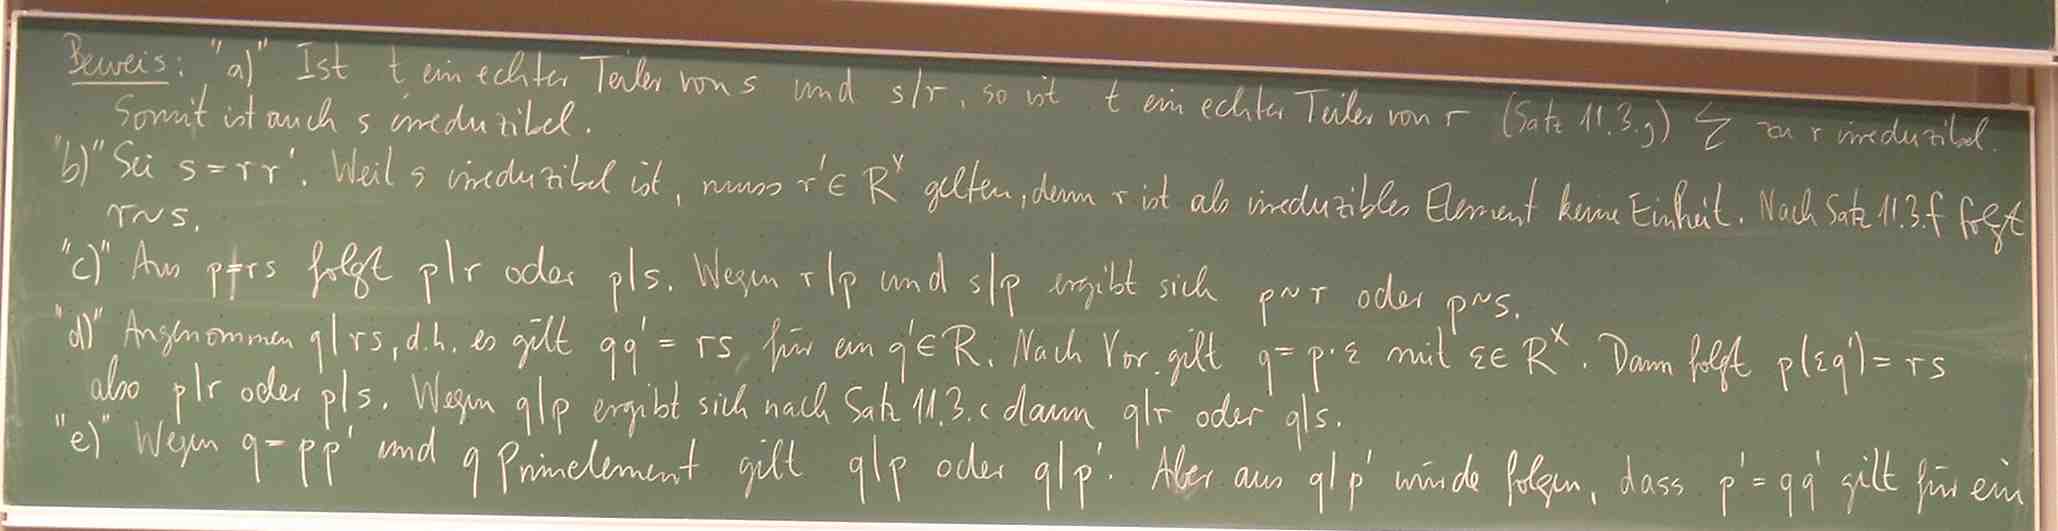 Beweis: "a)" Ist t ein echter Teiler von s und s/r, so ist t ein echter Teiler von r (Satz 11.3.g) ↯ zu r irreduzibel.
Somit ist auch s irreduzibel.
"b)" Sei s = rr'. Weil s irreduzibel ist, muss r' ∈ R^× gelten, denn r ist als irreduzibles Element keine Einheit. Nach Satz 11.3.f folgt
r~s.
"c)" Aus p=rs folgt p|r oder p|s. Wegen r|p und s|p ergibt sich p~r oder p~s.
"d)" Angenommen q|rs, d.h. es gilt qq' = rs für ein q' ∈ R. Nach Vor. gilt q = p·ε mit ε ∈ R^×. Dann folgt p(εq') = rs
also p|r oder p|s. Wegen q|p ergibt sich nach Satz 11.3.c dann q|r oder q|s.
"e)" Wegen q = pp' und q Primelement gilt q|p oder q|p'. Aber aus q|p' würde folgen, dass p' = qq' gilt für ein